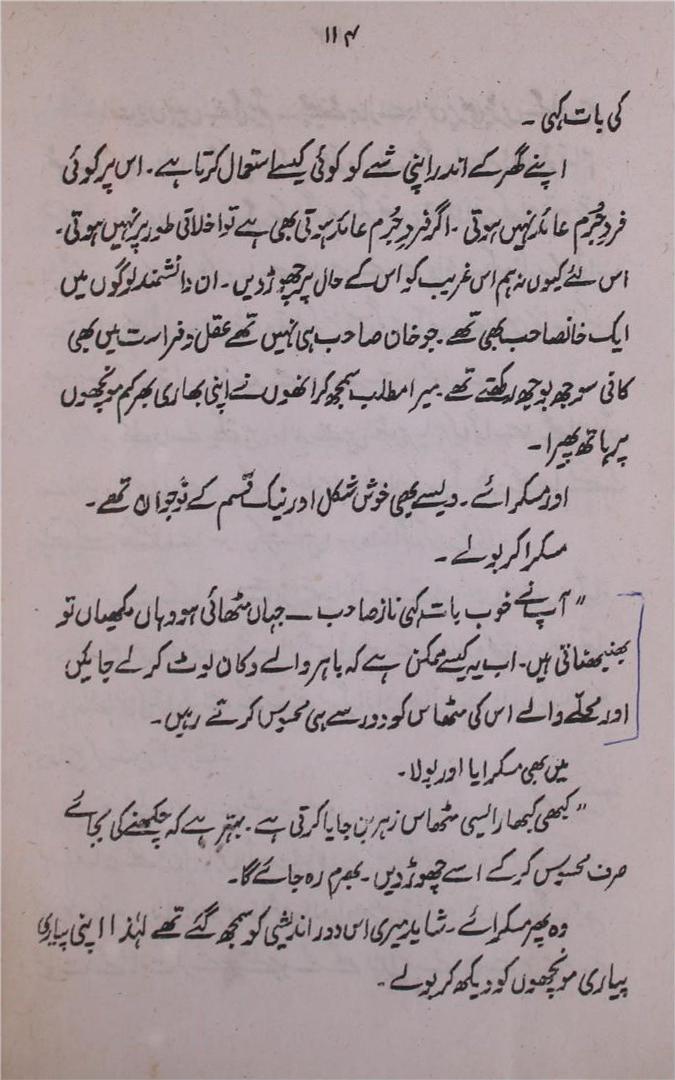 ۱۱۴
کی بات کہی ۔
اپنے گھر کے اندر اپنی شے کو کوئی کیسے استعمال کرتا ہے ۔ اس پر کوئی
فردِ جُرم عائد نہیں ہوتی ۔ اگر فردِ جُرم عائد ہوتی بھی ہے تو اخلاقی طور پر نہیں ہوتی ۔
اس لئے کیوں نہ ہم اس غریب کو اس کے حال پر چھوڑ دیں ۔ ان دانشمند لوگوں میں
ایک خانصاحب بھی تھے ۔ جو خان صاحب ہی نہیں تھے عقل و فراست میں بھی
کافی سوجھ بوجھ رکھتے تھے ۔ میرا مطلب سمجھ کر انھوں نے اپنی بھاری بھر کم مونچھوں
پر ہاتھ پھیرا ۔
اور مسکرائے ۔ ویسے بھی خوش شکل اور نیک قسم کے نوجوان تھے ۔
مسکرا کر بولے ۔
” آپ نے خوب بات کہی ناز صاحب ــ جہاں مٹھائی ہو وہاں مکھیاں تو
بھنبھناتی ہیں ۔ اب یہ کیسے ممکن ہے کہ باہر والے دکان لوٹ کر لے جائیں
اور محلّے والے اس کی مٹھاس کو دور سے ہی محسوس کرتے رہیں ۔
میں بھی مسکرایا اور بولا ۔
” کبھی کبھار ایسی مٹھاس زہر بن جایا کرتی ہے ۔ بہتر ہے کہ چکھنے کی بجائے
صرف محسوس کر کے اسے چھوڑ دیں ۔ بھرم رہ جائے گا ۔
وہ پھر مسکرائے ۔ شاید میری اس دور اندیشی کو سمجھ گئے تھے لہٰذا اپنی پیاری
پیاری مونچھوں کو دیکھ کر بولے ۔